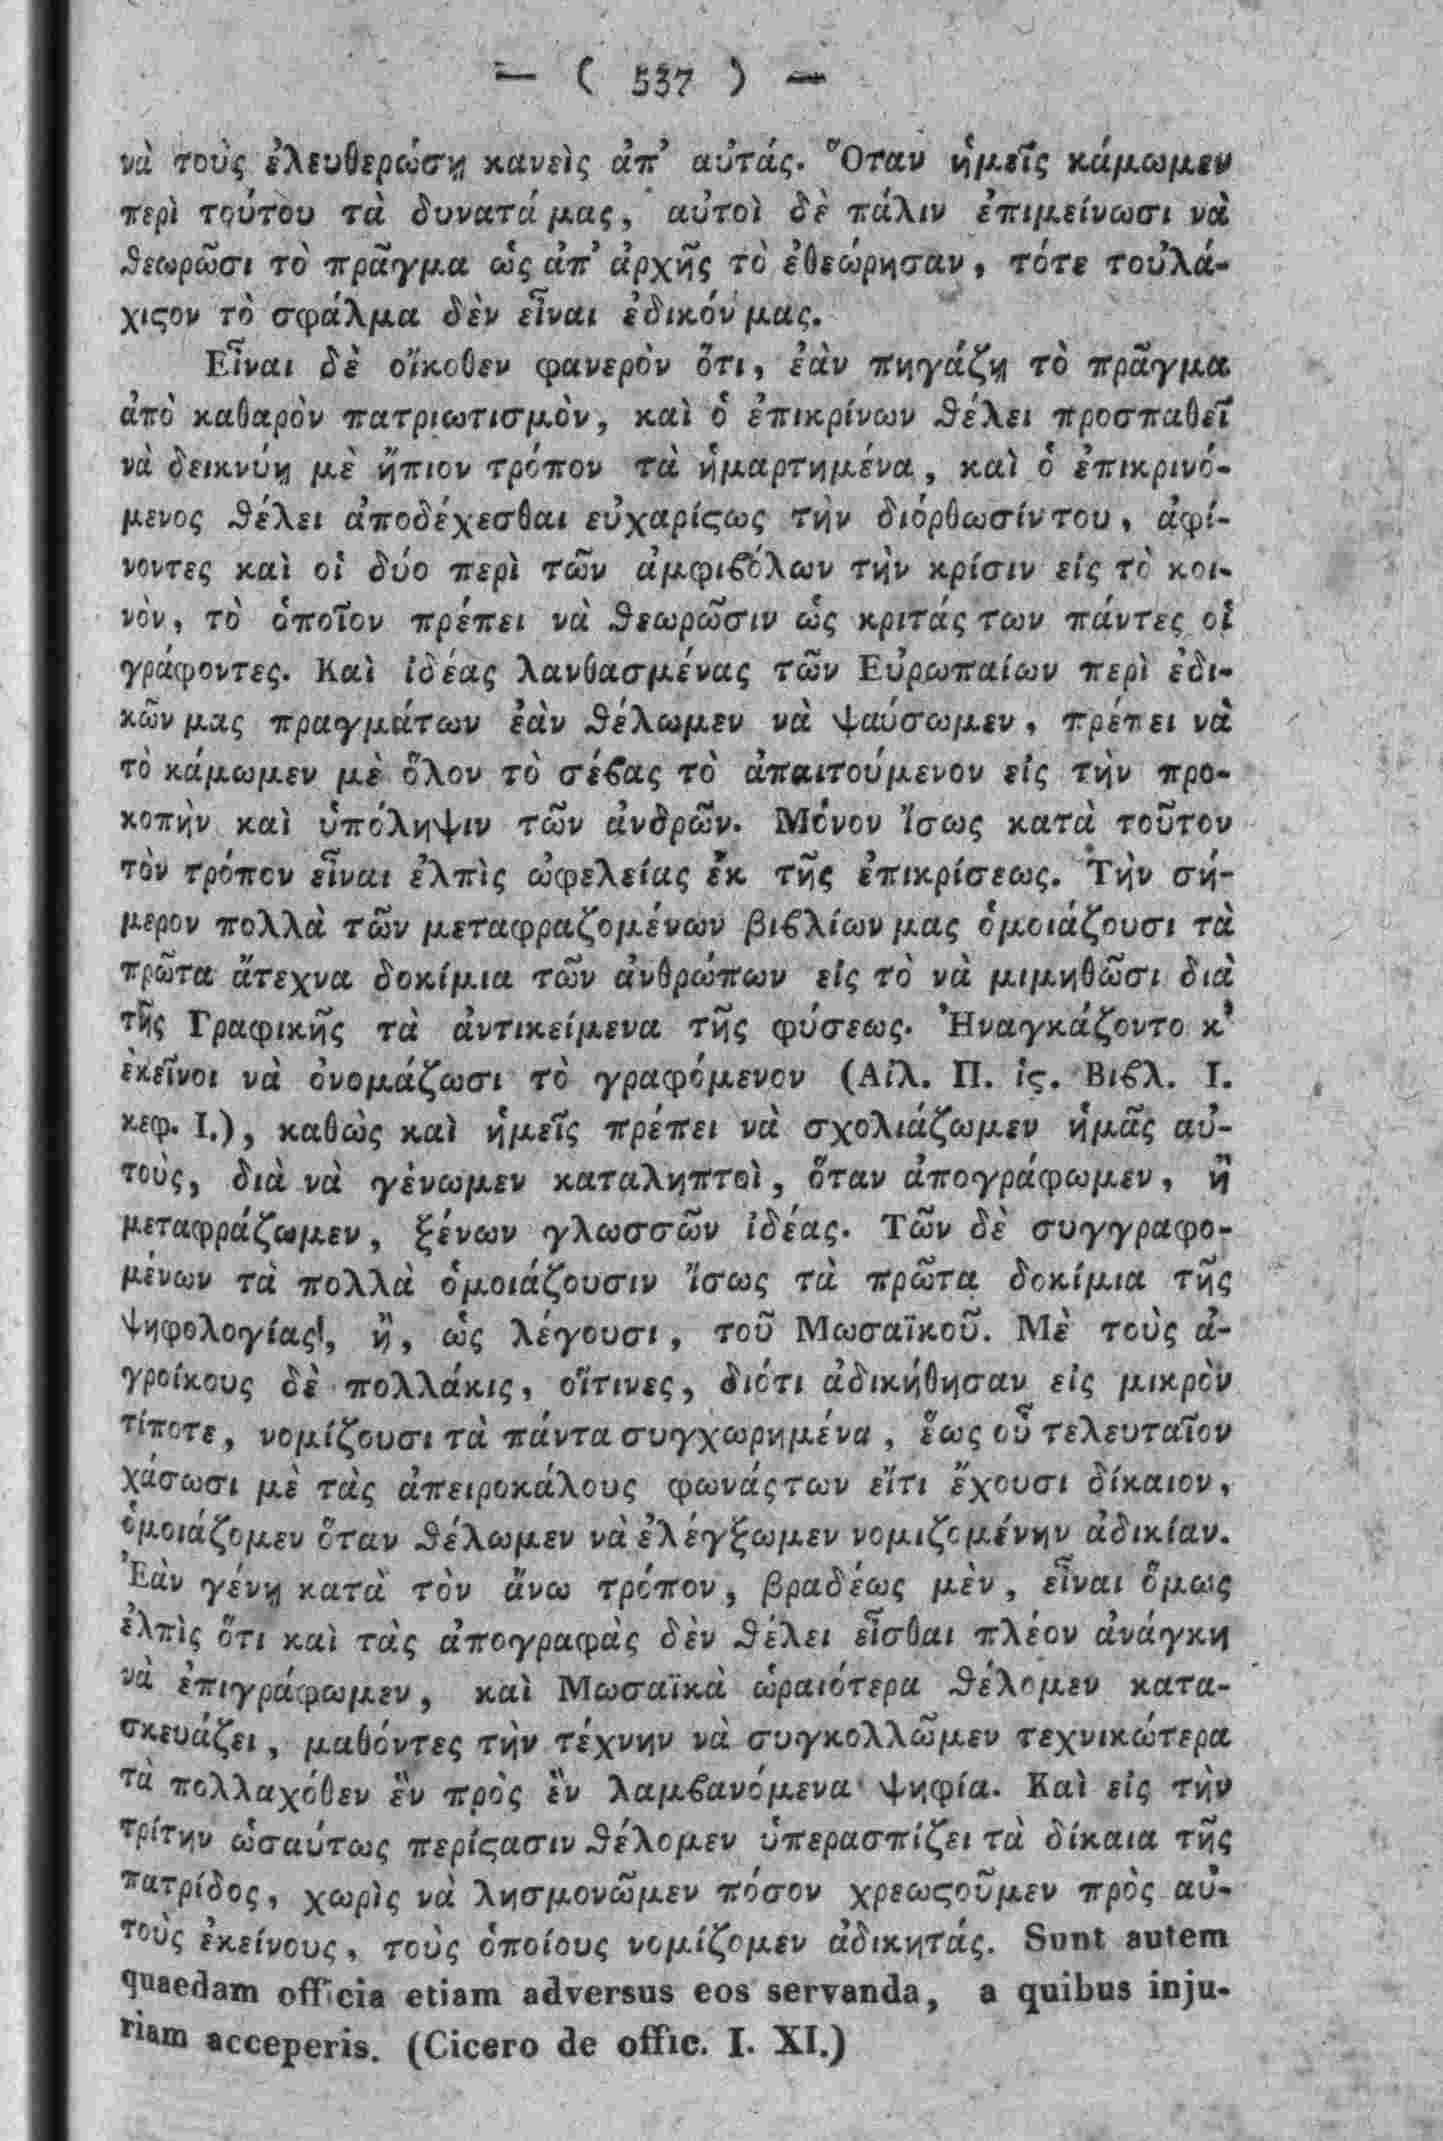 — ( 537 ) —
νὰ τοὺς ἐλευθερώσῃ κανεὶς ἀπ' αὐτάς. Ὅταν ἡμεῖς κάμωμεν
περὶ τούτου τὰ δυνατά μας, αὐτοὶ δὲ πάλιν ἐπιμείνωσι νὰ
θεωρῶσι τὸ πρᾶγμα ὡς ἀπ' ἀρχῆς τὸ ἐθεώρησαν, τότε τοὐλά-
χιϛον τὸ σφάλμα δὲν εἶναι ἐδικόν μας.
Εἶναι δὲ οἴκοθεν φανερὸν ὅτι, ἐὰν πηγάζῃ τὸ πρᾶγμα
ἀπὸ καθαρὸν πατριωτισμὸν, καὶ ὁ ἐπικρίνων θέλει προσπαθεῖ
νὰ δεικνύῃ μὲ ἤπιον τρόπον τὰ ἡμαρτημένα, καὶ ὁ ἐπικρινό-
μενος θέλει ἀποδέχεσθαι εὐχαρίϛως τὴν διόρθωσίντου, ἀφί-
νοντες καὶ οἱ δύο περὶ τῶν ἀμφιβόλων τὴν κρίσιν εἰς τὸ κοι-
νὸν, τὸ ὁποῖον πρέπει νὰ θεωρῶσιν ὡς κριτάς των πάντες οἱ
γράφοντες. Καὶ ἰδέας λανθασμένας τῶν Εὐρωπαίων περὶ ἐδι-
κῶν μας πραγμάτων ἐὰν θέλωμεν νὰ ψαύσωμεν, πρέπει νὰ
τὸ κάμωμεν μὲ ὅλον τὸ σέβας τὸ ἀπαιτούμενον εἰς τὴν προ-
κοπὴν καὶ ὑπόληψιν τῶν ἀνδρῶν. Μόνον ἴσως κατὰ τοῦτον
τὸν τρόπον εἶναι ἐλπὶς ὠφελείας ἐκ τῆς ἐπικρίσεως. Τὴν σή-
μερον πολλὰ τῶν μεταφραζομένων βιβλίων μας ὁμοιάζουσι τὰ
πρῶτα ἄτεχνα δοκίμια τῶν ἀνθρώπων εἰς τὸ νὰ μιμηθῶσι διὰ
τῆς Γραφικῆς τὰ ἀντικείμενα τῆς φύσεως. Ἠναγκάζοντο κ'
ἐκεῖνοι νὰ ὀνομάζωσι τὸ γραφόμενον (Αἰλ. Π. ἱϛ. Βιβλ. Ι.
κεφ. Ι.), καθὼς καὶ ἡμεῖς πρέπει νὰ σχολιάζωμεν ἡμᾶς αὐ-
τοὺς, διὰ νὰ γένωμεν καταληπτοὶ, ὅταν ἀπογράφωμεν, ἢ
μεταφράζωμεν, ξένων γλωσσῶν ἰδέας. Τῶν δὲ συγγραφο-
μένων τὰ πολλὰ ὁμοιάζουσιν ἴσως τὰ πρῶτα δοκίμια τῆς
ψηφολογίας, ἢ, ὡς λέγουσι, τοῦ Μωσαϊκοῦ. Μὲ τοὺς ἀ-
γροίκους δὲ πολλάκις, οἵτινες, διότι ἀδικήθησαν εἰς μικρὸν
τίποτε, νομίζουσι τὰ πάντα συγχωρημένα, ἕως οὗ τελευταῖον
χάσωσι μὲ τὰς ἀπειροκάλους φωνάςτων εἴτι ἔχουσι δίκαιον,
ὁμοιάζομεν ὅταν θέλωμεν νὰ ἐλέγξωμεν νομιζομένην ἀδικίαν.
Ἐὰν γένῃ κατὰ τὸν ἄνω τρόπον, βραδέως μὲν, εἶναι ὅμως
ἐλπὶς ὅτι καὶ τὰς ἀπογραφὰς δὲν θέλει εἶσθαι πλέον ἀνάγκη
νὰ ἐπιγράφωμεν, καὶ Μωσαϊκὰ ὡραιότερα θέλομεν κατα-
σκευάζει, μαθόντες τὴν τέχνην νὰ συγκολλῶμεν τεχνικώτερα
τὰ πολλαχόθεν ἓν πρὸς ἓν λαμβανόμενα ψηφία. Καὶ εἰς τὴν
τρίτην ὡσαύτως περίϛασιν θέλομεν ὑπερασπίζει τὰ δίκαια τῆς
πατρίδος, χωρὶς νὰ λησμονῶμεν πόσον χρεωϛοῦμεν πρὸς αὐ-
τοὺς ἐκείνους, τοὺς ὁποίους νομίζομεν ἀδικητάς. Sunt autem
quaedam officia etiam adversus eos servanda, a quibus inju-
riam acceperis. (Cicero de offic. I. XI.)